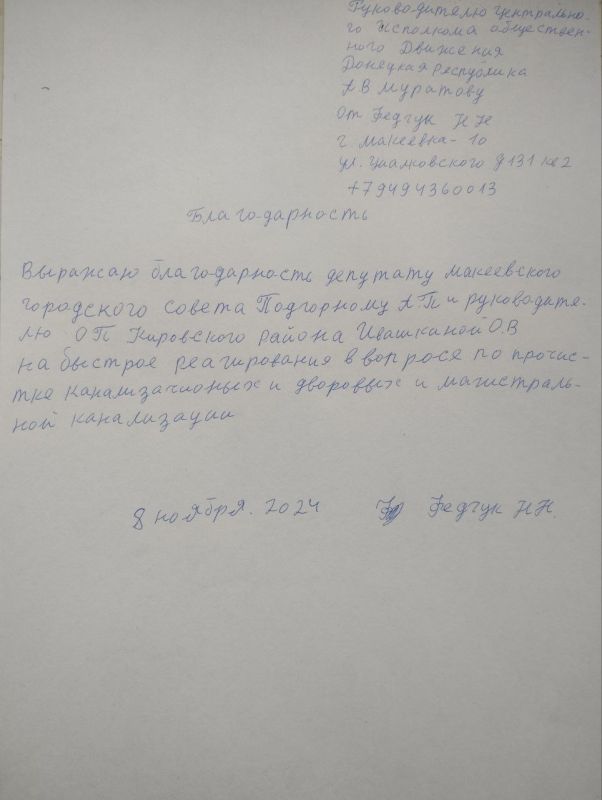 Руководителю центрально-
го Исполкома обществен-
ного Движения
Донецкая республика
А В Муратову
От Федчук Н Н
г. Макеевка - 10
ул. д 131 кв 2
+79494360013
Благодарность
Выражаю благодарность депутату макеевского
городского совета Подгорному А П и руководите-
лю ОП Кировского района Ивашканой О.В
на быстрое реагирования в вопросе по прочис-
тке канализационых и дворовых и магистраль-
ной канализации
8 ноября. 2024 Федчук Н Н.